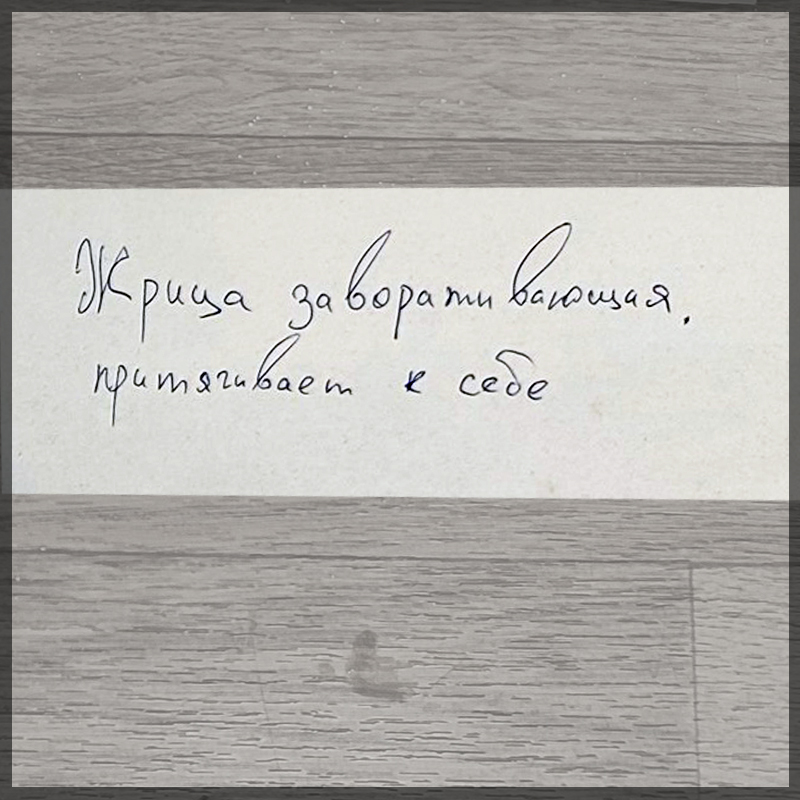 Жрица заворативающая.
притягивает к себе